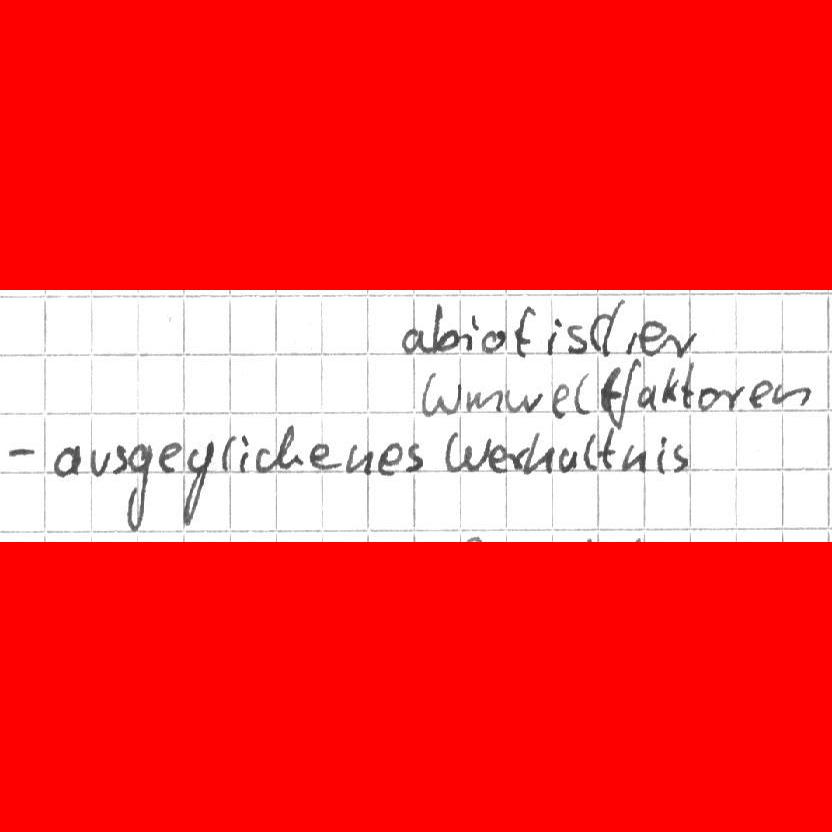 abiotischer
Umweltfaktoren
- ausgeglichenes Verhältnis